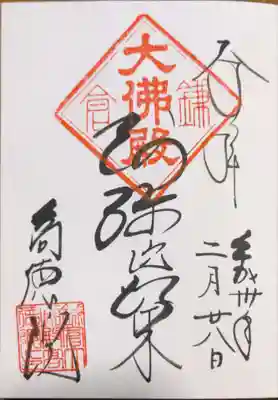 奉拝
鎌倉
大佛殿
阿弥陀如来
平成卅年
二月廿八日
高徳院